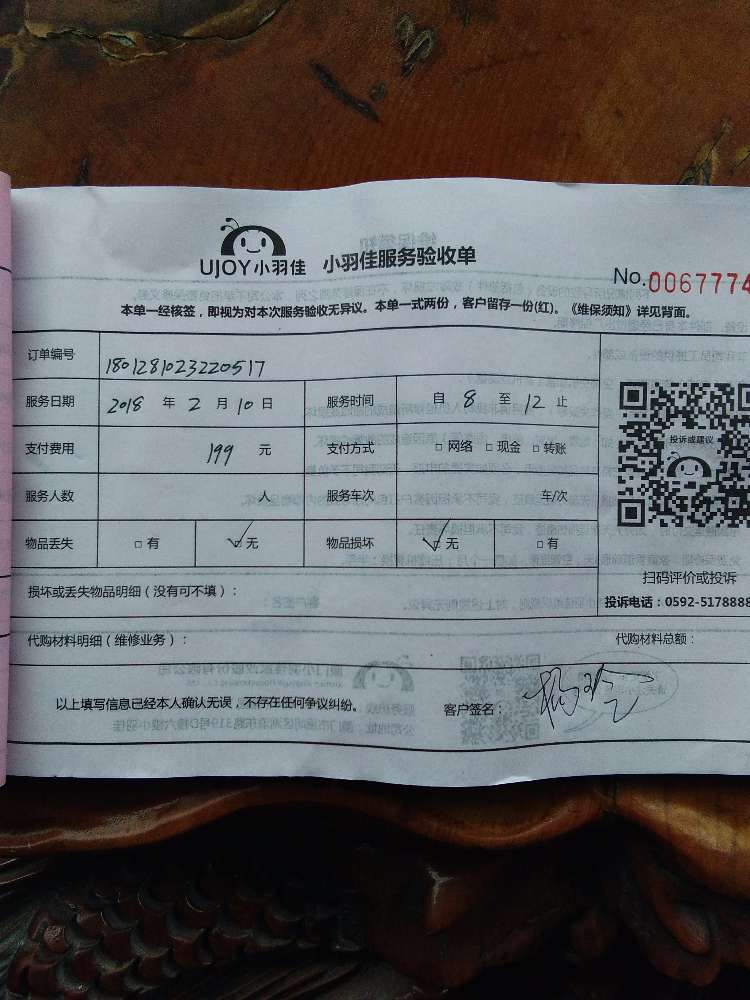 UJOY小羽佳 小羽佳服务验收单
No.0067774
本单一经核签，即视为对本次服务验收无异议。本单一式两份，客户留存一份(红)。《维保须知》详见背面。
订单编号 180128102322051​7
服务日期 2018 年 2 月 10 日 服务时间 自 8 至 12 止
支付费用 199 元 支付方式 □ 网络 □ 现金 □ 转账
投诉或建议
服务人数 人 服务车次 车/次
物品丢失 □ 有 ☑ 无 物品损坏 ☑ 无 □ 有
扫码评价或投诉
损坏或丢失物品明细（没有可不填）：
投诉电话：0592-5178888
代购材料明细（维修业务）： 代购材料总额：
以上填写信息已经本人确认无误，不存在任何争议纠纷。 客户签名：